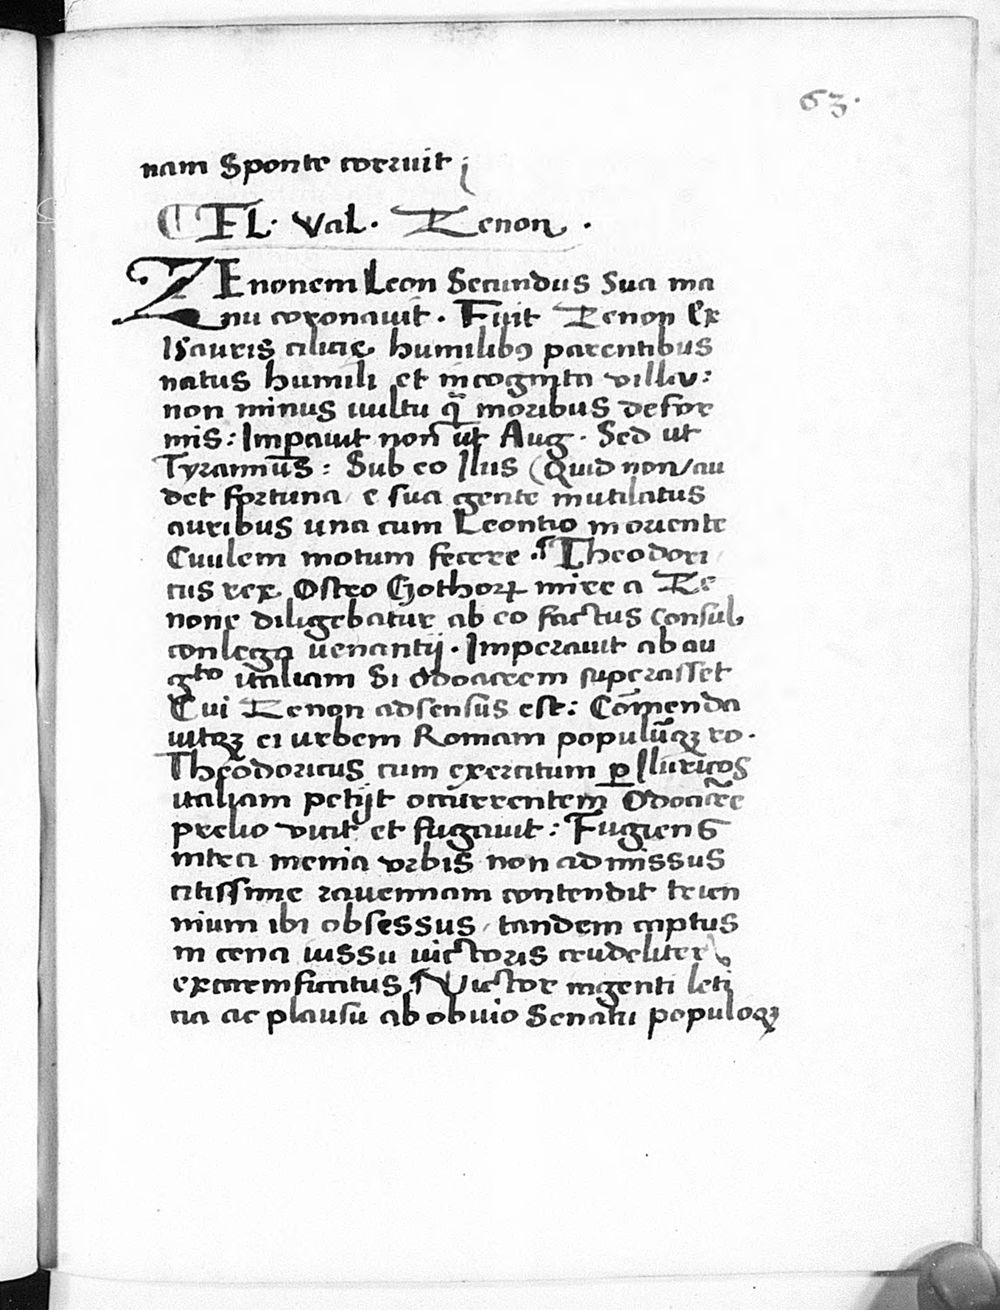 63.
nam Sponte corruit ;
CFL. Val. Zenon .
ZEnonem Leon Secundus Sua ma
nu coronauit . Fuit Zenon Ex
Isauris cilicie humilibꝰ parentibus
natus humili et incognito
non minus uultu q̃ moribus defor
mis : Imꝑauit non ut Aug. Sed ut
Tyrannus : Sub eo Ilus (Quid non / au
det fortuna / e sua gente mutilatus
auribus una cum Leontio in oriente
Ciuilem motum fecere . ¶ Theodori
cus rex Ostro Gothoꝝ mire a Ze
none diligebatur ab eo factus consul
conlega uenantij . Imperauit ab au
gto italiam Si Odoacrem superasset
Cui Zenon adsensus est : Com̃enda
uitqꝫ ei urbem Romam populũqꝫ ro.
Theodoricus cum exercitum ꝑ Illiricos
italiam petijt occurrentem Odoacrẽ
prelio uicit et fugauit : Fugiens
intra menia urbis non admissus
citissime rauennam contendit trien
nium ibi obsessus / tandem captus
in cena iussu uictoris crudeliter
excarnificatus . ¶ Victor ingenti leti
cia ac plausu ab obuio Senatu populoqꝫ